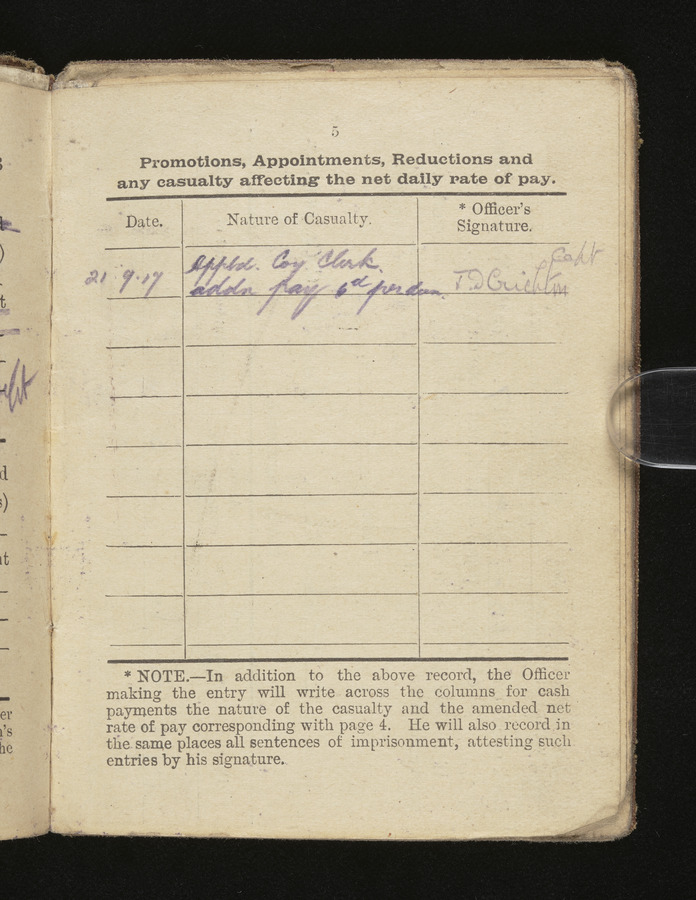 5
Promotions, Appointments, Reductions and
any casualty affecting the net daily rate of pay.
Date.
Nature of Casualty.
* Officer's
Signature.
21 9.17
Appted. Coy Clerk.
addn pay 6d per diem.
T D Crichton
Capt
* NOTE.—In addition to the above record, the Officer
making the entry will write across the columns for cash
payments the nature of the casualty and the amended net
rate of pay corresponding with page 4. He will also record in
the same places all sentences of imprisonment, attesting such
entries by his signature.